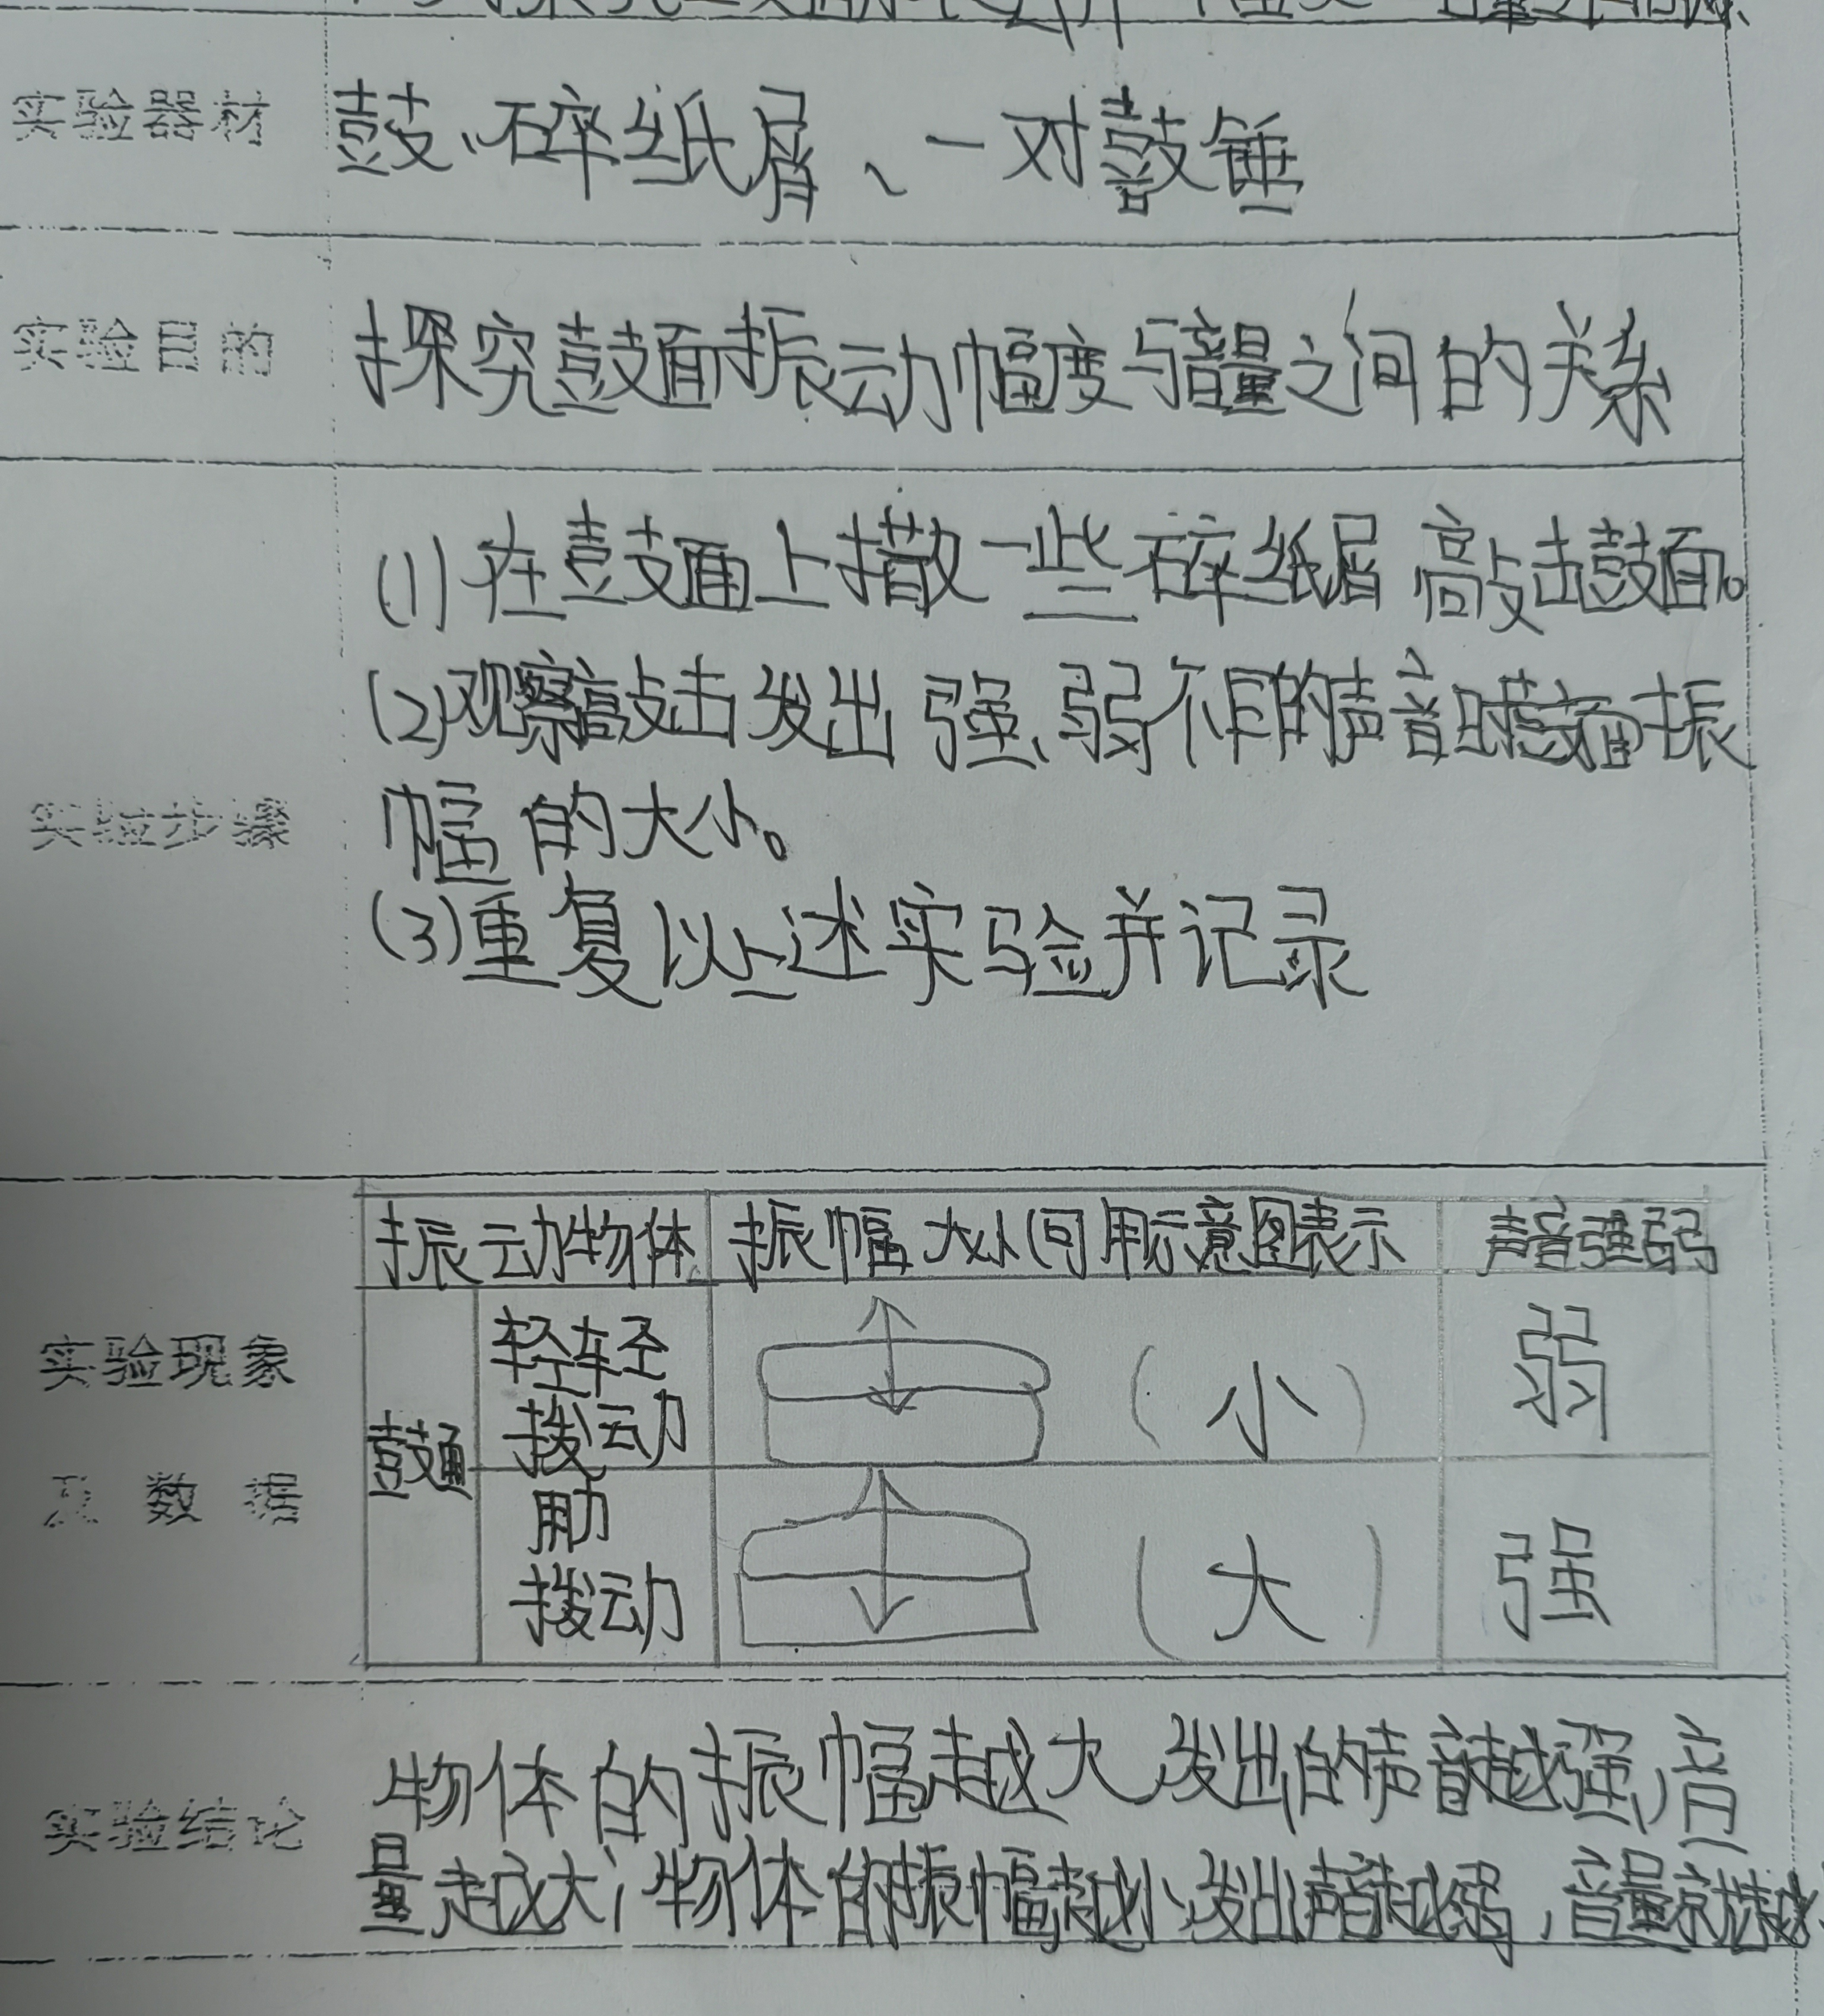 实验器材 鼓、碎纸屑、一对鼓锤
实验目的 探究鼓面振动幅度与音量之间的关系
(1)在鼓面上撒一些碎纸屑 敲击鼓面。
(2)观察敲击发出强、弱不同的声音时鼓面振
实验步骤 幅的大小。
(3)重复以上述实验并记录
振动物体 振幅大小(可用示意图表示 声音强弱
实验现象
及数据
鼓面
轻轻
拨动 (小) 弱
用力
拨动 (大) 强
物体的振幅越大,发出的声音越强,音
实验结论
量越大;物体的振幅越小,发出声音越弱,音量就越